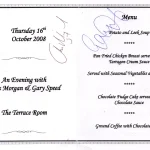 Thursday 16th
October 2008
An Evening with
Morgan & Gary Speed
The Terrace Room
Menu
Potato and Leek Soup
*****
Pan Fried Chicken Breast served
Tarragon Cream Sauce
Served with Seasonal Vegetables
*****
Chocolate Fudge Cake served
Chocolate Sauce
*****
Ground Coffee with Chocolate